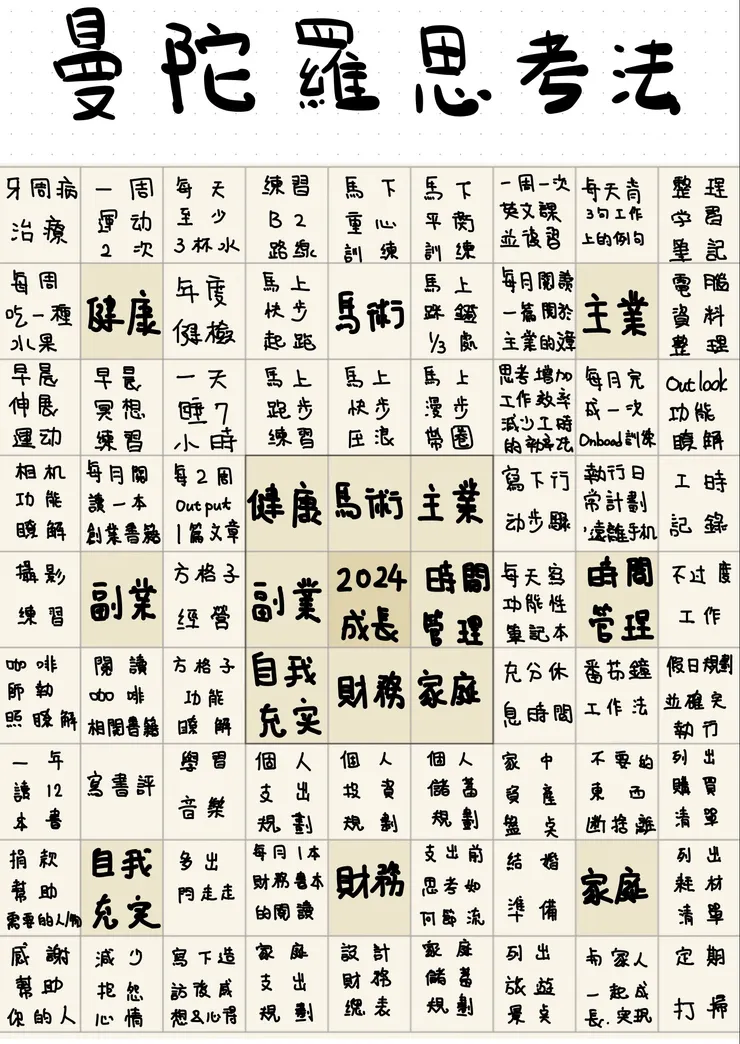 曼陀羅思考法
牙周病 一周 每天 練習 馬下 馬下 一周一次 每天背 整理
治療 運动 至少 B2 重心 平衡 英文課 3句工作 学習
2次 3杯水 路線 訓練 訓練 並複習 上的例句 筆記
每周 健康 年度 馬上 馬術 馬上 每月閱讀 主業 電腦
吃一種 健檢 快步 踩鐙 一篇関於 資料
水果 起跑 1/3處 主業的 整理
早晨 早晨 一天 馬上 馬上 馬上 思考增加 每月完 Outlook
伸展 冥想 睡7 跑步 快步 漫步 工作效率 成一次 功能
運动 練習 小時 練習 圧浪 帶圈 減少工時 Onboad訓練 瞭解
的
相机 每月閱 每2周 健康 馬術 主業 寫下行 執行日 工時
功能 讀一本 Output 动步驟 常計劃 記錄
瞭解 創業書籍 1篇文章 遠離手机
攝影 副業 方格子 副業 2024 時間 每天寫 時間 不过度
練習 経營 成長 管理 功能性 管理 工作
筆記本
咖啡 閱讀 方格子 自我 財務 家庭 充分休 番茄鐘 假日規劃
師執 咖啡 功能 充実 息時間 工作法 並確定
照瞭解 相関書籍 瞭解 執行
一年 寫書評 學習 個人 個人 個人 家中 不要的 列出
讀12 音樂 支出 投資 儲蓄 資產 東西 購買
本書 規劃 規劃 規劃 盤点 断捨離 清單
捐款 自我 多出 每月1本 財務 支出前 結婚 家庭 列出
幫助 充実 門走走 財務書本 思考如 準備 耗材
需要的人/物 的閱讀 何節流 清單
感謝 減少 寫下造 家庭 設計 家庭 列出 与家人 定期
幫助 抱怨 訪後感 支出 財務 儲蓄 旅遊 一起成 打掃
你的人 心情 想&心得 規劃 總表 規劃 景点 長、実現